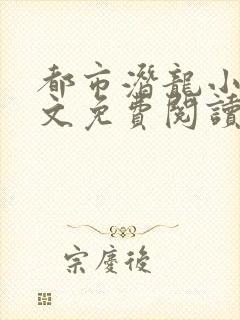 都市潛龍小
文免費閱讀
宗慶後